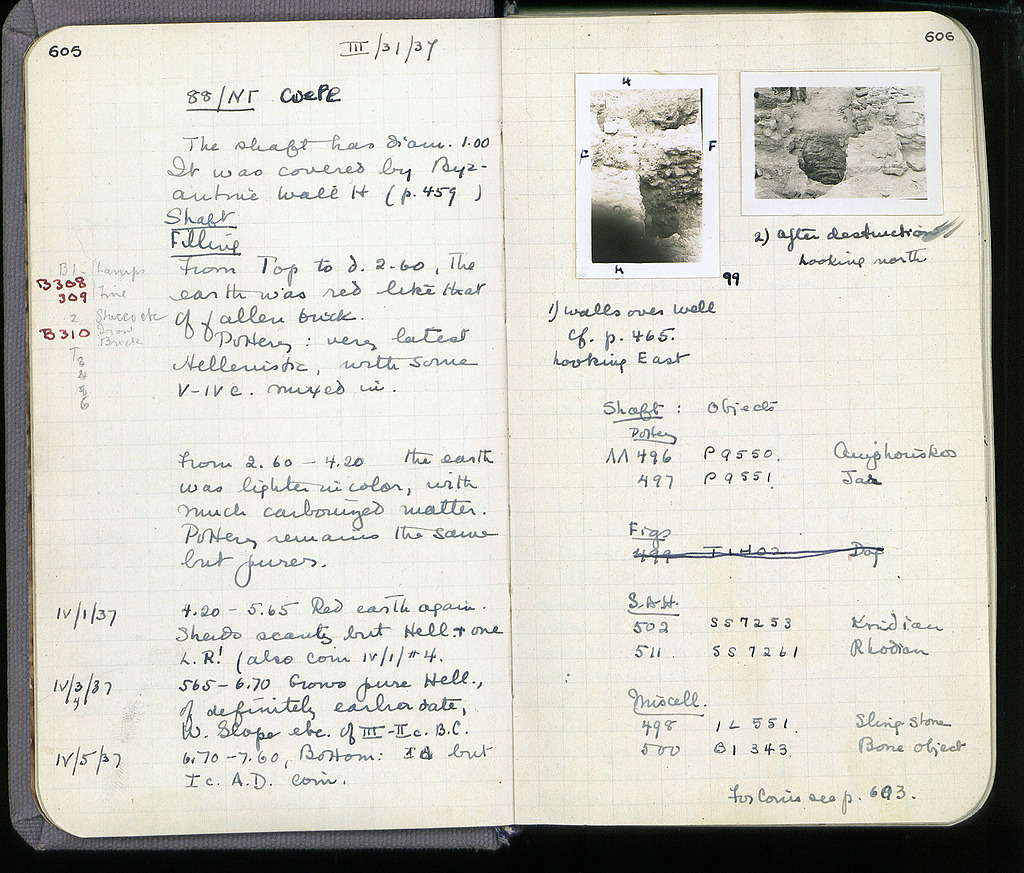 605
III/31/37
88/ΝΓ
The shaft has diam. 1.00
It was covered by Byz-
antine wall H (p. 459)
Shaft
Filling
From Top to d. 2.60, the
earth was red like that
of fallen brick.
Pottery: very latest
Hellenistic, with some
V-IV c. mixed in.
B1-
Lamps
B308
309
2
Stucco etc
B310
Iron
Brick
3
4
5
6
From 2.60 - 4.20 the earth
was lighter in color, with
much carbonized matter.
Pottery remains the same
but purer.
IV/1/37
4.20 - 5.65 Red earth again.
Sherds scanty but Hell + one
L.R! (also coin IV/1/#4.
IV/3/37
4
565-6.70 Grows pure Hell.,
of definitely earlier date,
W. Slope etc. of III-II c. B.C.
IV/5/37
6.70-7.60, Bottom: but
I c. A.D. coin.
606
H
F
F
H
99
2) after destruction
looking north
1) walls over well
cf. p. 465.
looking East
Shaft: Objects
Pottery
ΛΛ 496 P 9550. Amphoriskos
497 P 9551 Jar
Figs
499 T 1402 Dog
S.A.H.
502 SS 7253 Knidian
511 SS 7261 Rhodian
Miscell.
498 IL 551 Sling Stone
500 BI 343 Bone object
For Coins see p. 693.